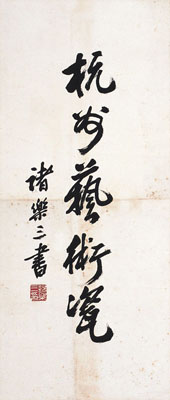 杭州藝術瓷
諸樂三書